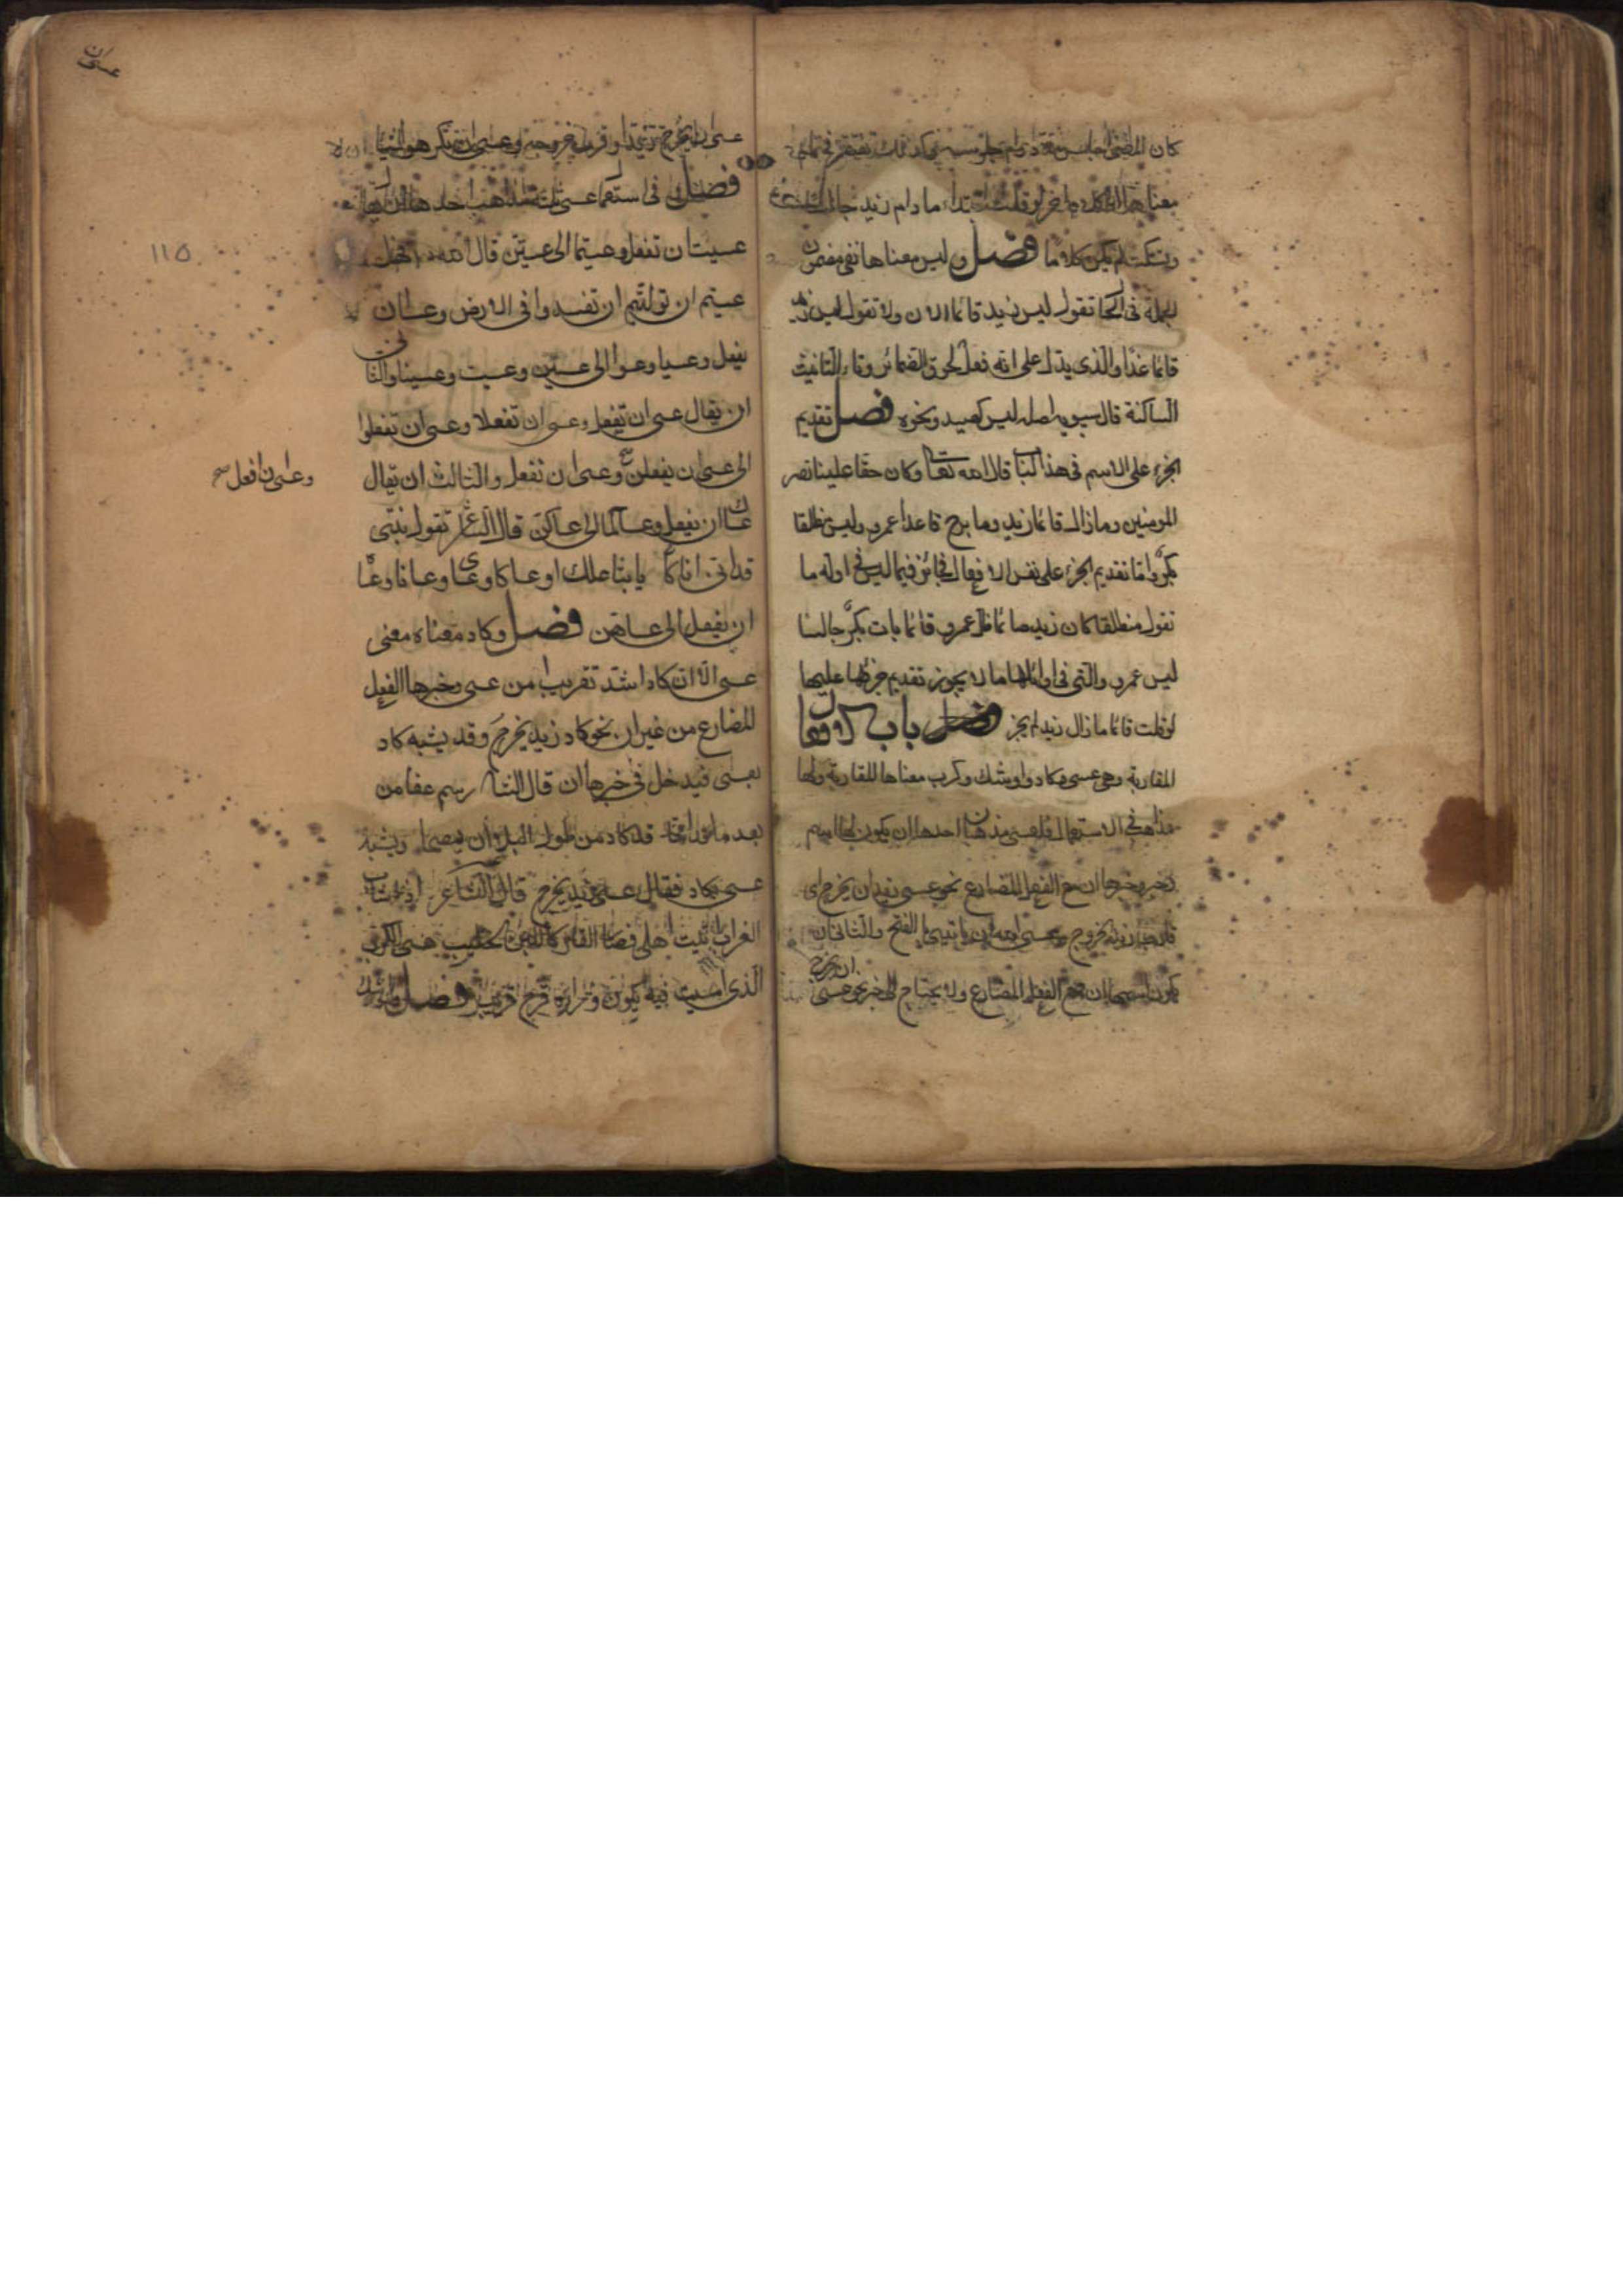 كان المضى اجلس مقدار دوام جلوسه
معناها الى كلام اخر لو قلت ابتداء ما دام زيد جالسا
وسكت لم يكن كلاما فصل وليس معناها نفى مضمون
الجملة فى الحال تقول ليس زيد قائما الان ولا تقول ليس زيد
قائما غدا والذى يدل على انه فعل لحوق الضمائر وتاء التانيث
الساكنة قال سيبويه اصله ليس كصيد ونحوه فصل تقديم
الخبر على الاسم فى هذا الباب قال الله تعالى وكان حقا علينا نصر
المومنين وما زال قائما زيد وما برح قاعدا عمرو وليس منطلقا
بكر واما تقديم الخبر على نفس الافعال فجائز فيما ليس فى اوله ما
تقول منطلقا كان زيد صائما ظل عمرو قائما بات بكر جالسا
ليس عمرو والتى فى اوائلها ما لا يجوز تقديم خبرها عليها
لو قلت قائما ما زال زيد لم يجز فصل باب افعال
المقاربة وهى عسى وكاد واوشك وكرب معناها المقاربة ولها
مذاهب فى الاستعمال فلعسى مذهبان احدها ان يكون لها اسم
وخبر وخبرها ان مع الفعل المضارع نحو عسى زيد ان يخرج اى
قارب زيد الخروج وعسى الله ان ياتينى بالفتح والثانى ان
يكون اسمها ان مع الفعل المضارع ولا يحتاج الى خبر نحو عسى
ان يخرج
عسى ان يخرج زيد اى قرب خروجه وعسى ان تكرهوا شيئا
فصل فى استعمال عسى ثلث مذاهب احدها ان يقال
عسيت ان تفعل وعسيتما الى عسيتن قال الله
عسيتم ان توليتم ان تفسدوا فى الارض وعسى ان
يفعل وعسيا وعسوا الى عسين وعسيت وعسينا والثانى
ان يقال عسى ان تفعل وعسى ان تفعلا وعسى ان تفعلوا
الى عسى ان يفعلن وعسى ان نفعل والثالث ان يقال
وعسى ان افعل صح
عساك ان تفعل وعساكما الى عساكن قال الشاعر تقول بنتى
قد انى اناكا يا ابتا علك او عساكا وعساى وعسانا وعساه
ان يفعل الى عساهن فصل وكاد معناه معنى
عسى الا ان كاد اشد تقريبا من عسى وخبرها الفعل
المضارع من غير ان نحو كاد زيد يخرج وقد يشبه كاد
بعسى فيدخل فى خبرها ان قال الشاعر رسم عفا من
بعد ما قد امحا قد كاد من طول البلى ان يمصحا ويشبه
عسى بكاد فقال عسى زيد يخرج قال الشاعر
هلى
الذى امسيت فيه يكون وراءه فرج قريب فصل واوشك
١١٥